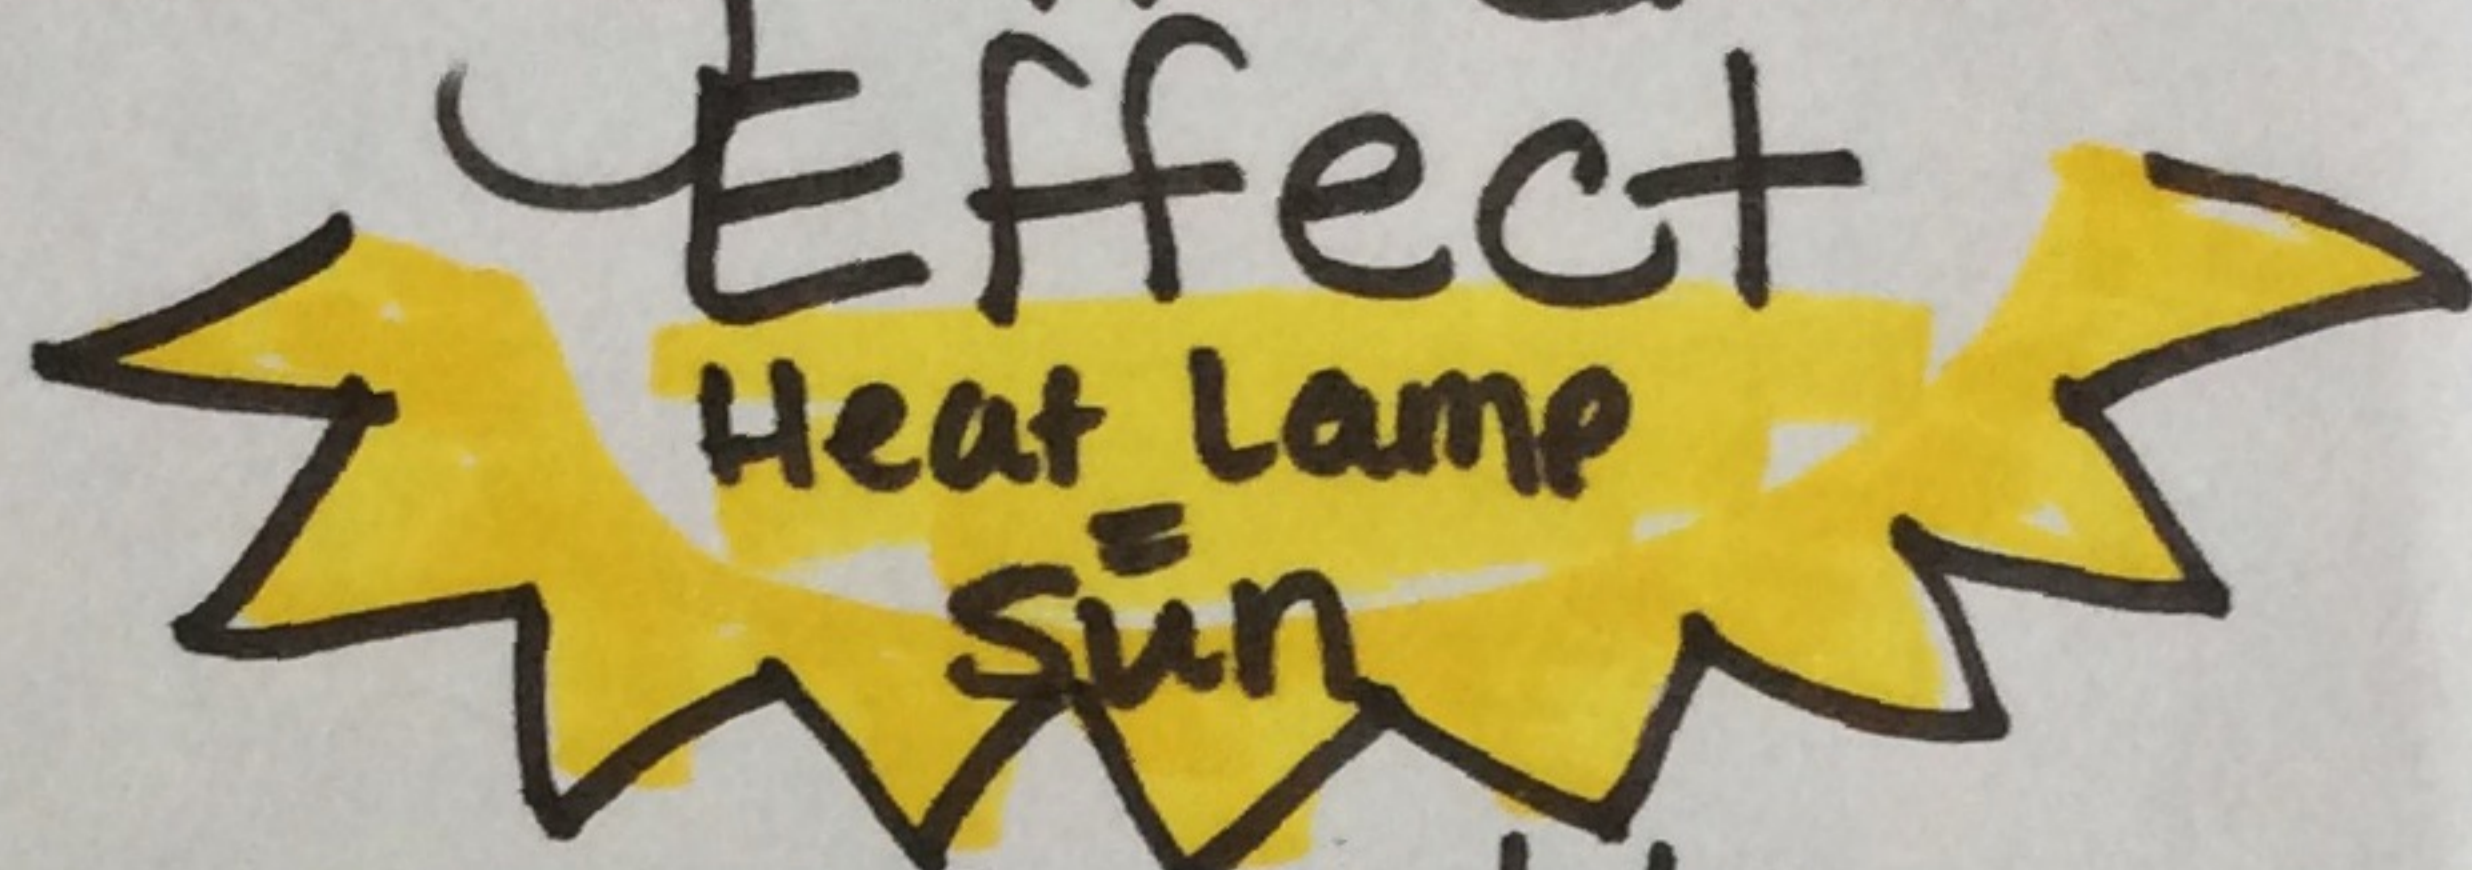 Effect
Heat Lamp
=
Sun